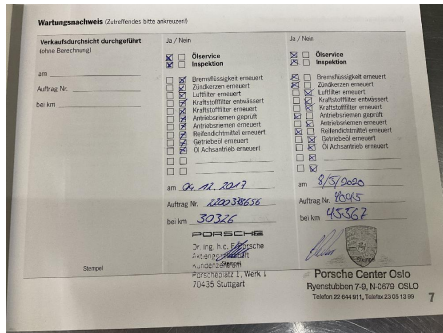 Wartungsnachweis (Zutreffendes bitte ankreuzen)
Verkaufsdurchsicht durchgeführt
(ohne Berechnung)
am
Auftrag Nr.
bei km
Stempel
Ja / Nein
Ölservice
Inspektion
Bremsflüssigkeit erneuert
Zündkerzen erneuert
Luftfilter erneuert
Kraftstofffilter entwässert
Kraftstofffilter erneuert
Antriebsriemen geprüft
Antriebsriemen erneuert
Reifendichtmittel erneuert
Getriebeöl erneuert
Öl Achsantrieb erneuert
am 04.12.2017
Auftrag Nr. 2200378656
bei km 30326
PORSCHE
Dr. Ing. h.c. F. Porsche
Aktiengesellschaft
Kundenzentrum
Porscheplatz 1, Werk 1
70435 Stuttgart
Stempel
Ja / Nein
Ölservice
Inspektion
Bremsflüssigkeit erneuert
Zündkerzen erneuert
Luftfilter erneuert
Kraftstofffilter entwässert
Kraftstofffilter erneuert
Antriebsriemen geprüft
Antriebsriemen erneuert
Reifendichtmittel erneuert
Getriebeöl erneuert
Öl Achsantrieb erneuert
am 8/5/2020
Auftrag Nr.
bei km 45567
Porsche Center Oslo
Ryenstubben 7-9, N-0679 OSLO
Telefon 22 644 911, Telefax 23 05 13 99
7